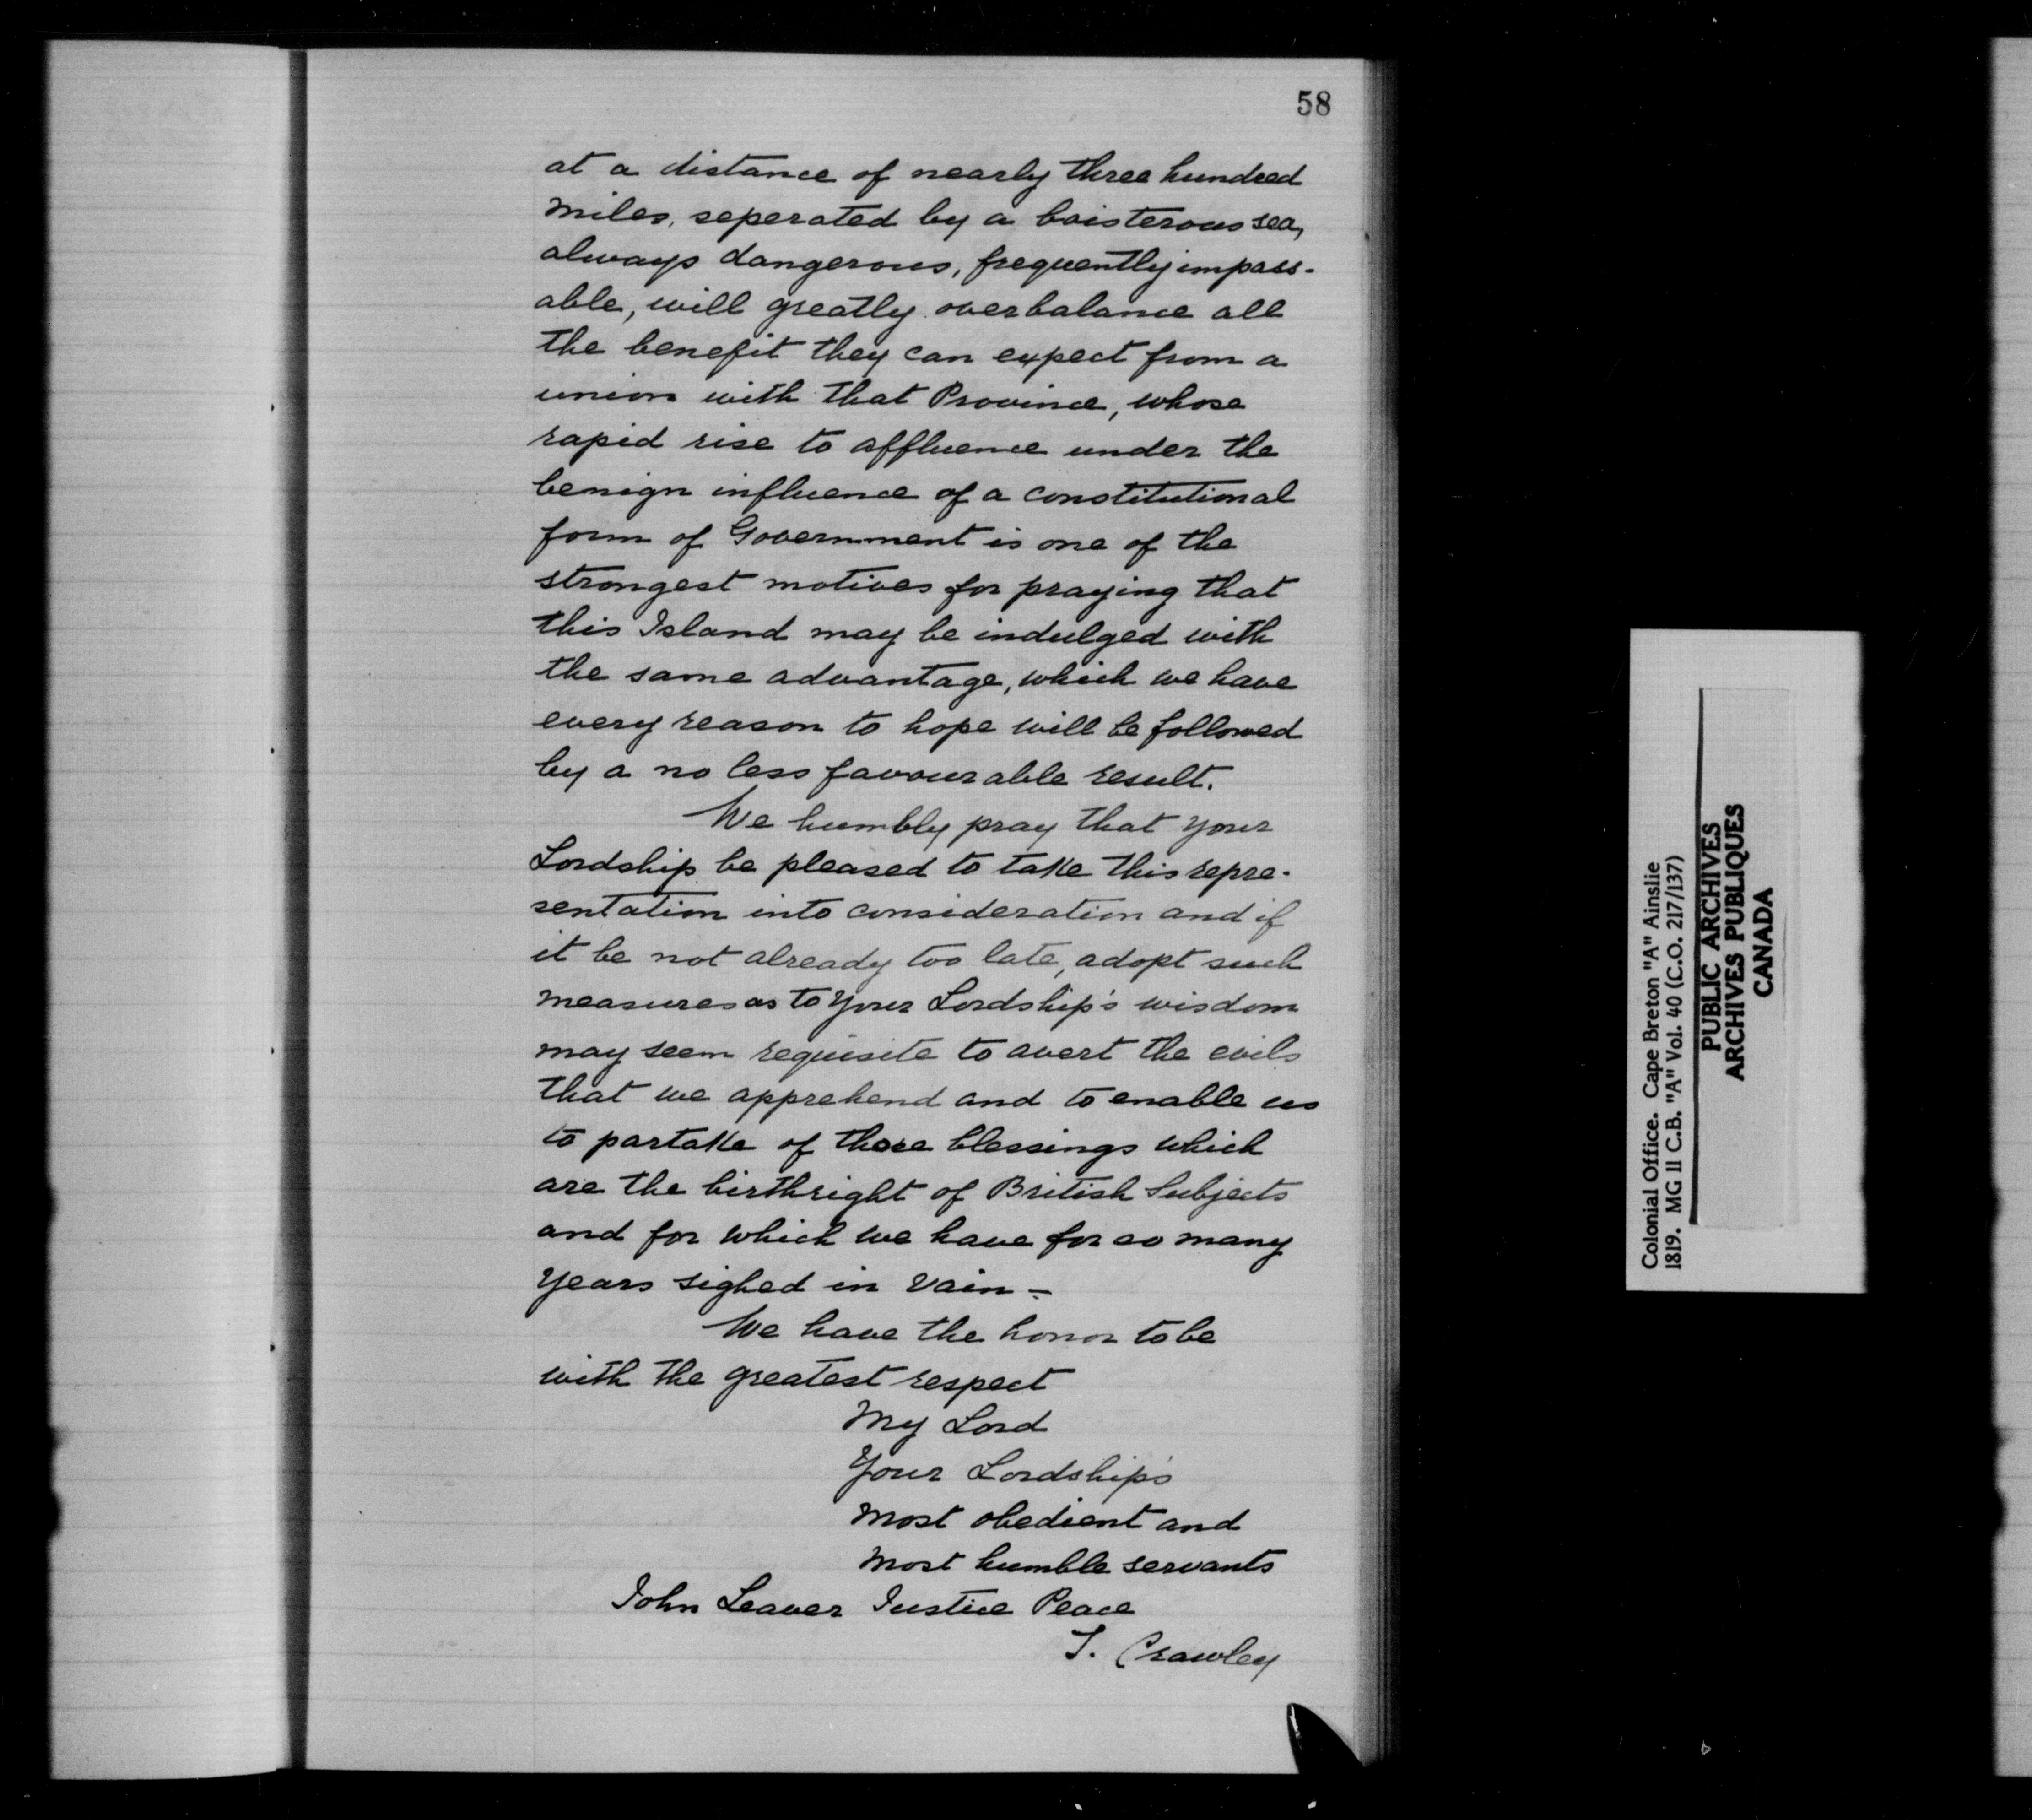 58
at a distance of nearly three hundred
miles, seperated by a boisterous sea,
always dangerous, frequently impass-
able, will greatly overbalance all
the benefit they can expect from a
union with that Province, whose
rapid rise to affluence under the
benign influence of a constitutional
form of Government is one of the
strongest motives for praying that
this Island may be indulged with
the same advantage, which we have
every reason to hope will be followed
by a no less favourable result.
We humbly pray that your
Lordship be pleased to take this repre-
sentation into consideration and if
it be not already too late, adopt such
measures as to Your Lordship's wisdom
may seem requisite to avert the evils
that we apprehend and to enable us
to partake of those blessings which
are the birthright of British Subjects
and for which we have for so many
years sighed in vain -
We have the honor to be
with the greatest respect
My Lord
Your Lordship's
most obedient and
most humble servants
John Leaver Justice Peace
T. Crawley
Colonial Office. Cape Breton "A" Ainslie
1819. MG 11 C.B. "A" Vol. 40 (C.O. 217/137)
PUBLIC ARCHIVES
ARCHIVES PUBLIQUES
CANADA